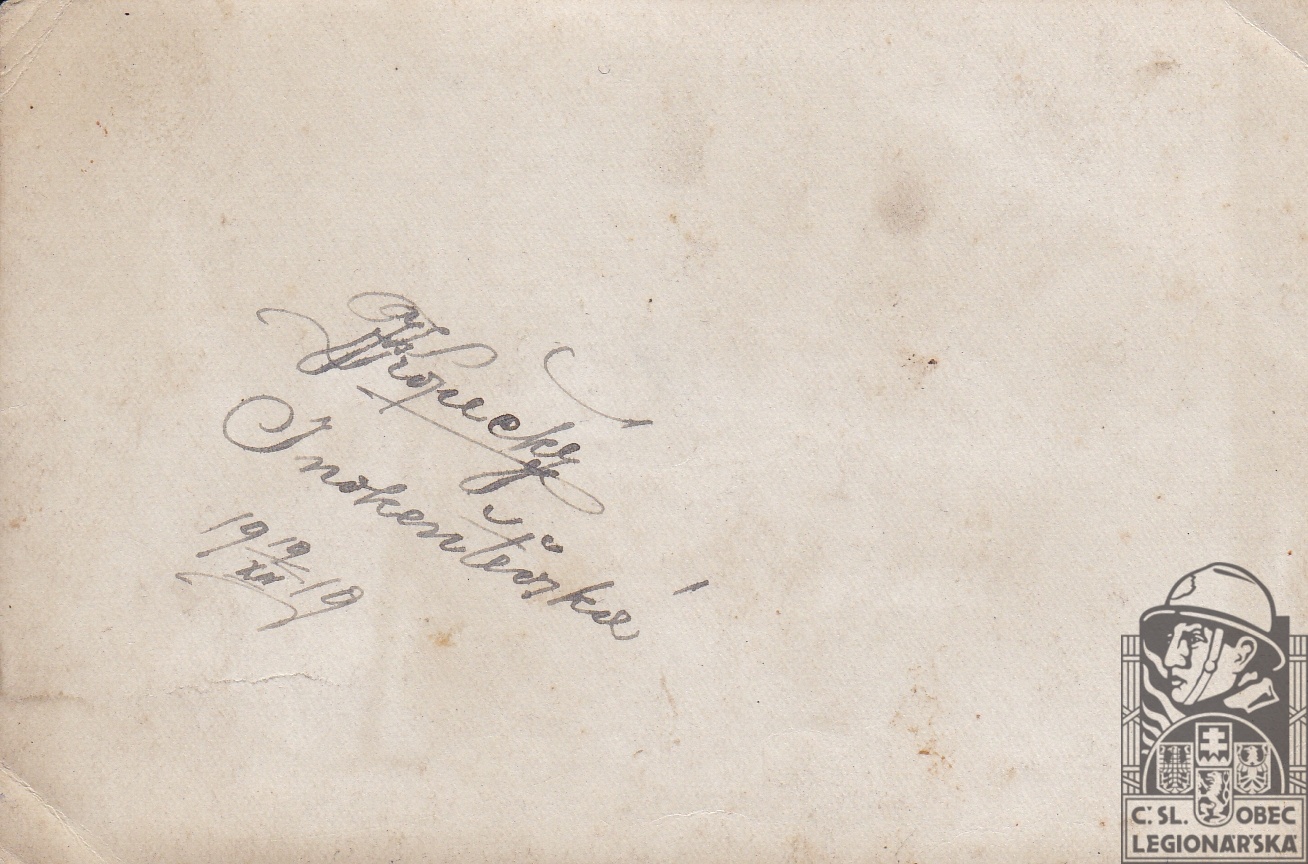 Kropecký
Inokentěvská
19 19/XII 19
Č. SL. OBEC
LEGIONÁŘSKÁ